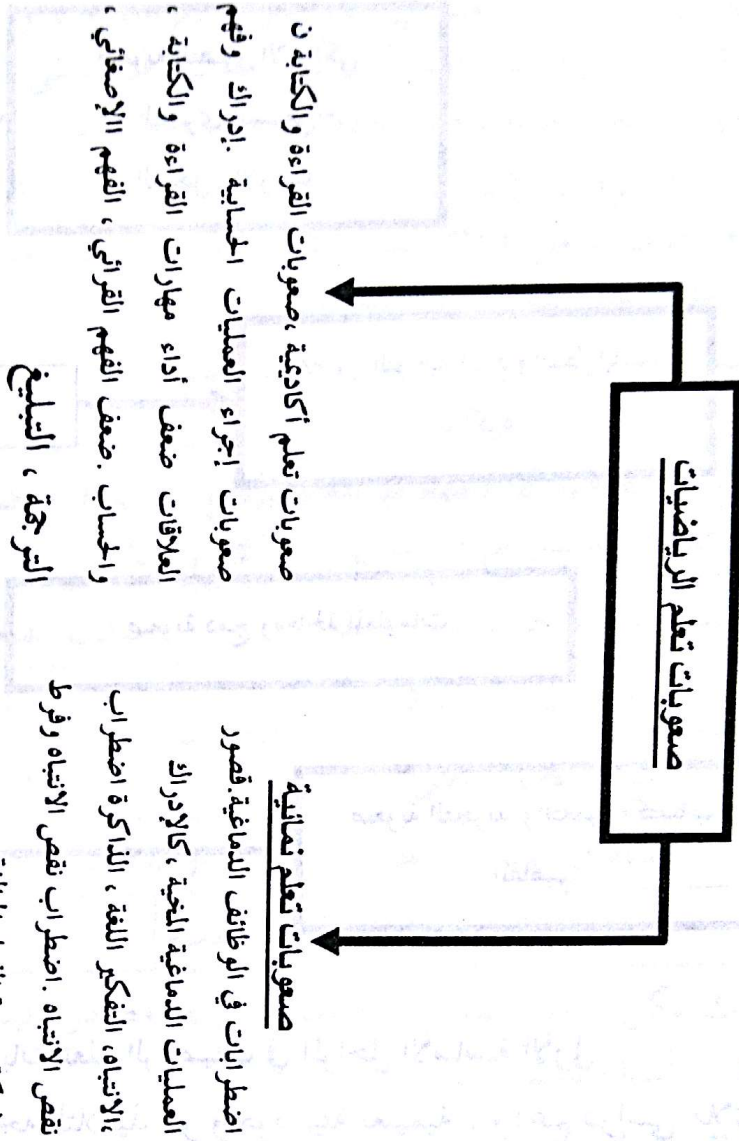 صعوبات تعلم الرياضيات
صعوبات تعلم أكاديمية ،صعوبات القراءة والكتابة ن
صعوبات إجراء العمليات الحسابية .إدراك وفهم
العلاقات ضعف أداء مهارات القراءة والكتابة ،
والحساب .ضعف الفهم القرائي ، الفهم االإصغائي ،
الترجمة ، التبليغ
صعوبات تعلم نمائية
اضطرابات في الوظائف الدماغية.قصور
العمليات الدماغية المخية ،كالإدراك
،الانتباه، التفكير اللغة ، الذاكرة اضطراب
نقص الانتباه .اضطراب نقص الانتباه وفرط